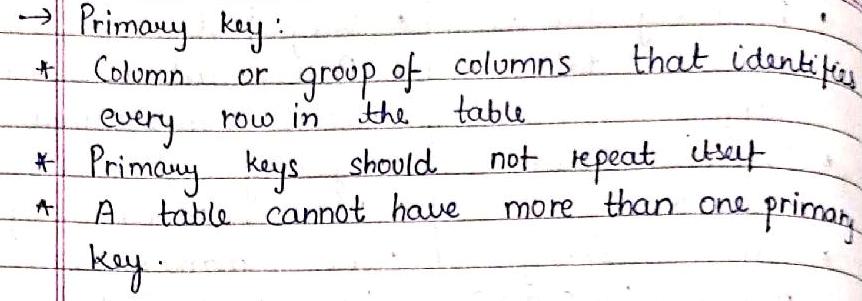 → Primary key :
* Column or group of columns that identifies
every row in the table
* Primary keys should not repeat itself
* A table cannot have more than one primary
key.